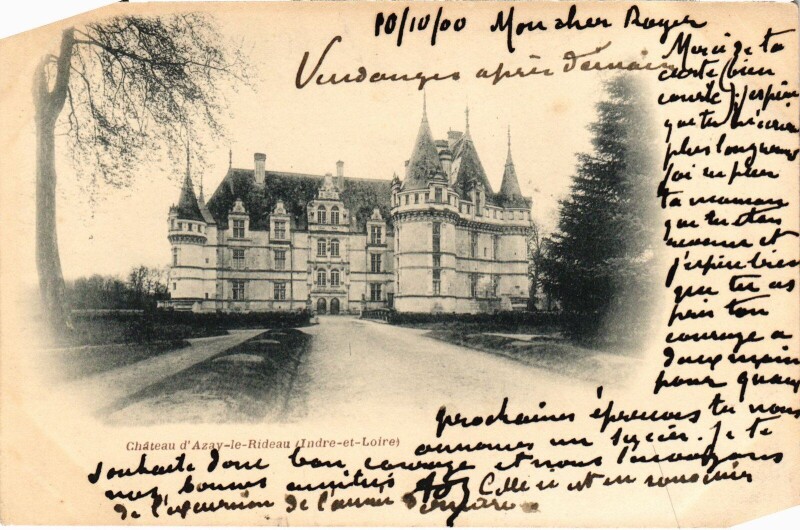 10/10/00 Mon cher Roger
Vendanges après demain
Merci de ta
carte (bien
courte) j'espère
que tu
plus longuement
ta maman
que tu étais
et
j'espère bien
que tu as
pris ton
courage a
deux mains
pour
prochaines épreuves tu nous
annonces un succès. Je te
Château d'Azay-le-Rideau (Indre-et-Loire)
souhaite donc bon courage et nous t'envoyons
nos bonnes amitiés Celle ci est en souvenir
de l'excursion de l'année